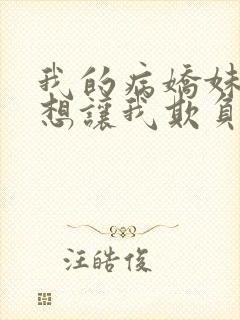 我的病嬌妹
想讓我欺負
汪皓俊